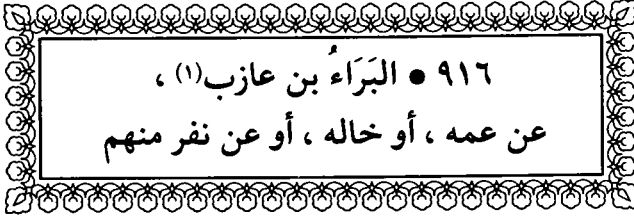 ٩١٦ • البَرَاءُ بن عازب(١) ،
عن عمه ، أو خاله ، أو عن نفر منهم